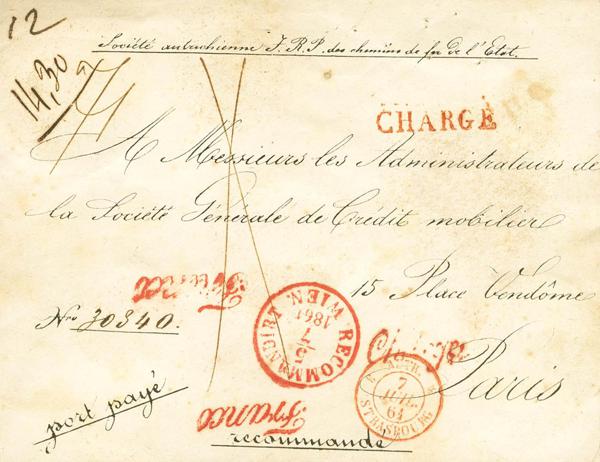 12
14,30
Société autrichienne I. R. P. des chemins de fer de l'Etat.
CHARGÉ
A Messieurs les Administrateurs de
la Société Générale de Crédit mobilier
15 Place Vendôme
Paris
France
Nro 30340.
RECOMMANDIRT WIEN
5
7
1861
Chargé
7
JUIL.
61
STRASBOURG
port payé
France
recommandé